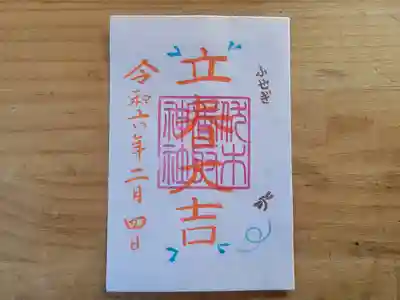 ふせぎ
立春大吉
令和六年二月四日